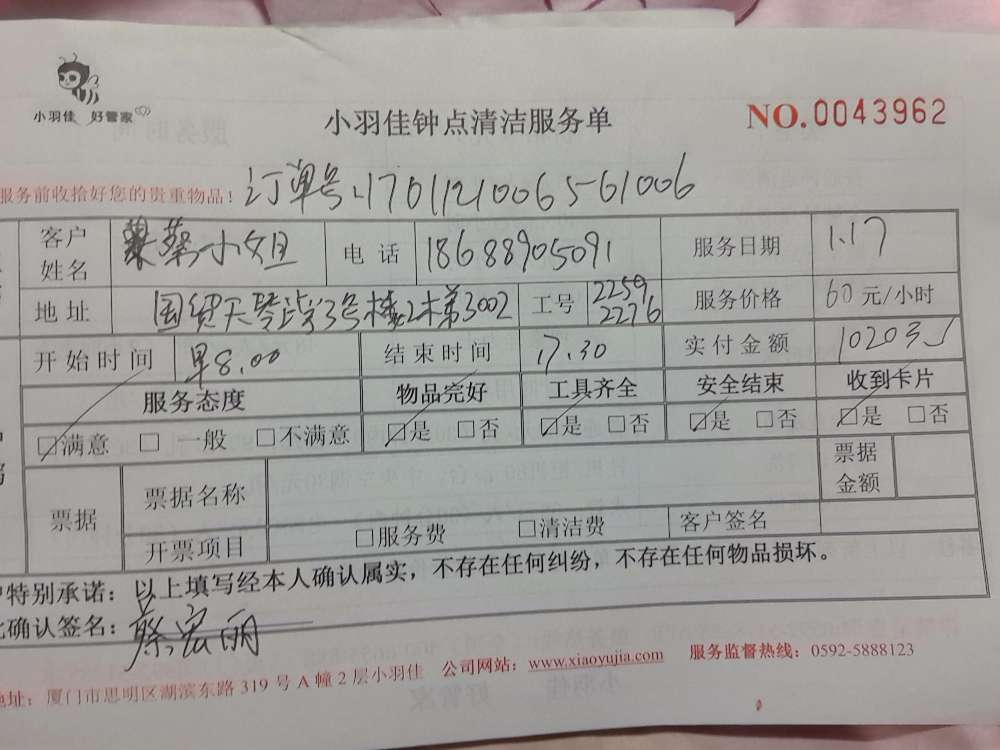 小羽佳 好管家
小羽佳钟点清洁服务单
NO.0043962
服务前收拾好您的贵重物品！
订单号:1701121006561006
客户姓名 蔡小姐 电话 18688905091 服务日期 1.17
地址 国贸天琴湾3号楼2梯3002 工号 2259 2276 服务价格 60元/小时
开始时间 早8.00 结束时间 17.30 实付金额
服务态度 物品完好 工具齐全 安全结束 收到卡片
☑满意 □一般 □不满意 ☑是 □否 ☑是 □否 ☑是 □否 ☑是 □否
票据 票据名称 票据金额
开票项目 □服务费 □清洁费 客户签名
特别承诺：以上填写经本人确认属实，不存在任何纠纷，不存在任何物品损坏。
确认签名：蔡宏丽
地址：厦门市思明区湖滨东路319号A幢2层小羽佳 公司网站：www.xiaoyujia.com 服务监督热线：0592-5888123